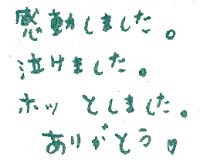 感動しました。
泣けました。
ホッ としました。
ありがとう♡